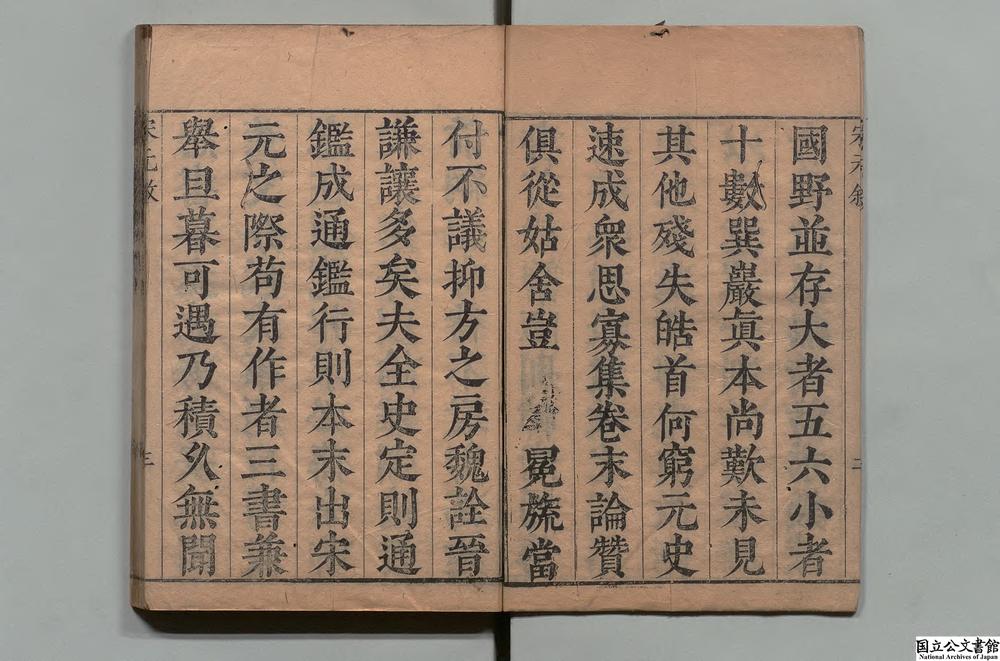 國野並存大者五六小者
十數巽巖眞本尚歎未見
其他殘失皓首何窮元史
速成衆思寡集卷末論贊
俱從姑舍豈 冕旒當
付不議抑方之房魏詮晉
謙讓多矣夫全史定則通
鑑成通鑑行則本末出宋
元之際苟有作者三書兼
舉旦暮可遇乃積久無聞
国立公文書館
National Archives of Japan